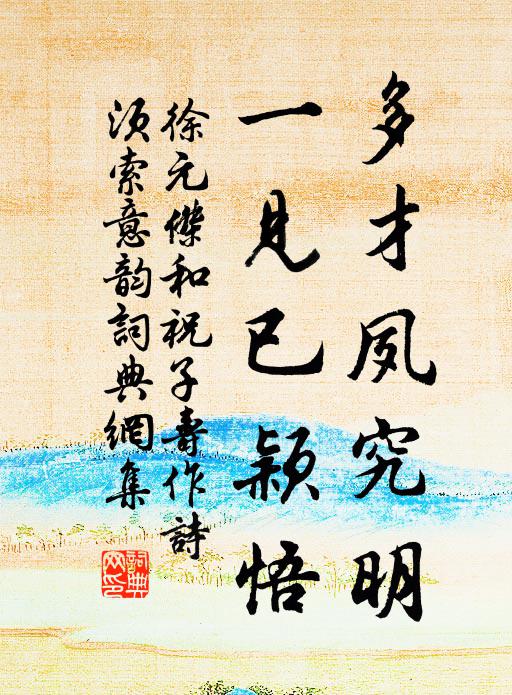 多才夙究明
一見已穎悟
徐元傑和祝子壽作詩
須索意韵詞典網集
詞典
网印